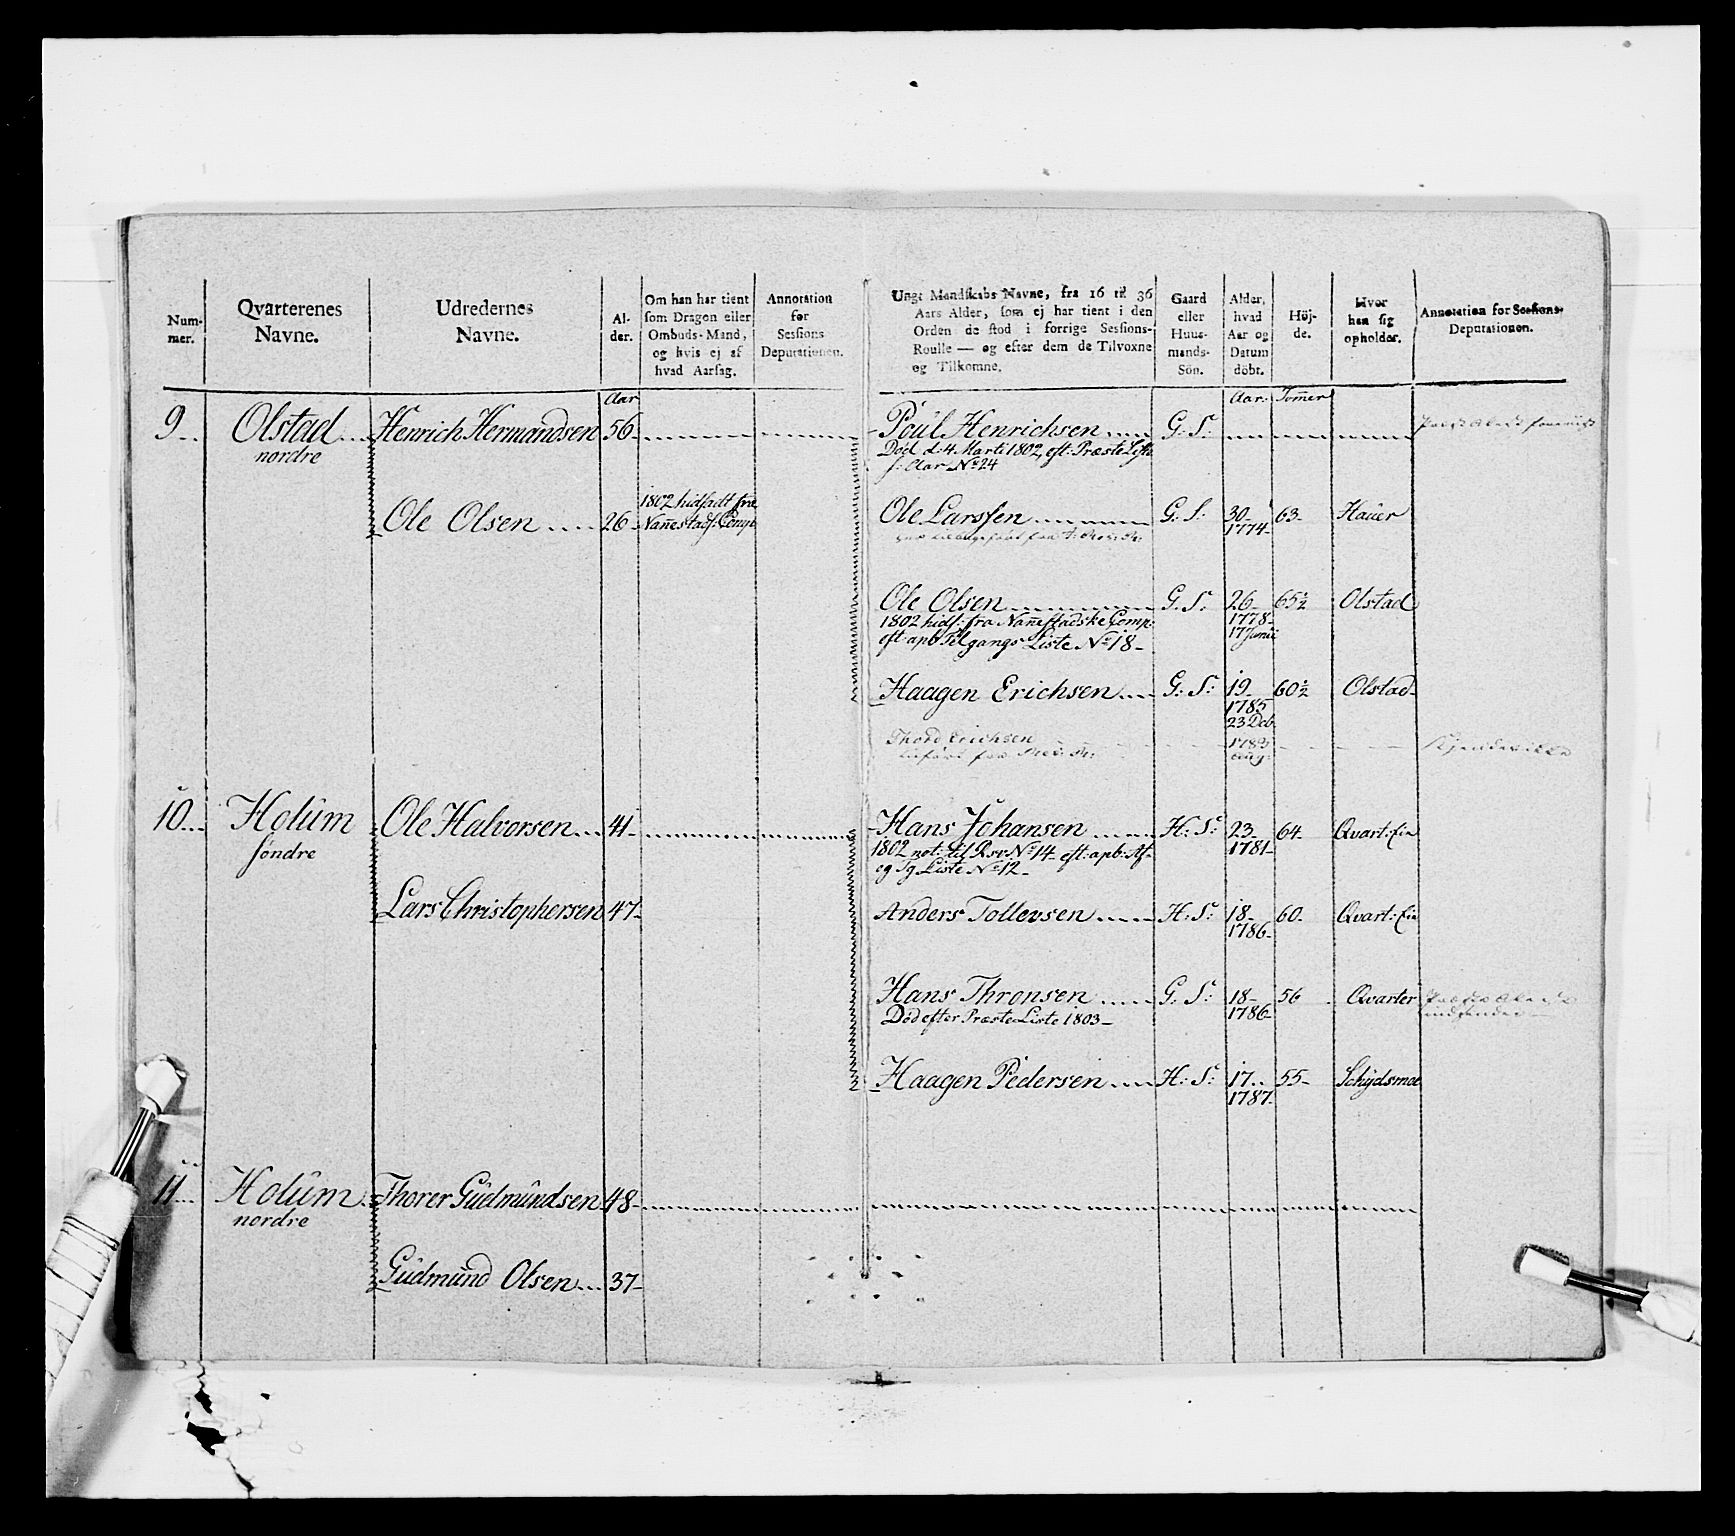 Num-
mer.
Qvarterenes
Navne.
Udredernes
Navne.
Al-
der.
Om han har tient
som Dragon eller
Ombuds-Mand,
og hvis ej af
hvad Aarsag.
Annotation
for
Sessions
Deputationen.
Ungt Mandskabs Navne, fra 16 til 36
Aars Alder, som ej har tient i den
Orden de stod i forrige Sessions-
Roulle — og efter dem de Tilvoxne
og Tilkomne.
Gaard
eller
Huus-
mands-
Sön.
Alder,
hvad
Aar og
Datum
döbt.
Höj-
de.
Hvor
han sig
opholder.
Annotation for Sessions-
Deputationen.
Aar
Aar. Tom̄er
9 Olstad Henrich Hermandsen 56 Poul Henrichsen G: S:
nordre
Död d: 4 Marti 1802, eft: Præste Liste
f: Aar No 24
Ole Olsen 26 1802 hidsadt fra
Nan̄estads Comp
Ole Larssen G: S: 30 63 Hauer
1774
Ole Olsen G: S: 26 65½ Olstad
1802 hids: fra Nan̄estadske Comp: 1778
eft: apb Tilgangs Liste No 18 17 Junii
Haagen Erichsen G: S: 19 60½ Olstad
1785
23 Dcb
Thord Erichsen 1783
10 Holum Ole Halvorsen 41 Hans Johansen H: S: 23 64 Qvart: Ein
söndre
1802 not: til Rsv No 14 eft: apb: Af- 1781
og Tg Liste No 12
Lars Christophersen 47 Anders Tollevsen H: S: 18 60 Qvart: Ein
1786
Hans Thronsen G: S: 18 56 Qvarter
Död efter Præste Liste 1803 1786
Haagen Pedersen H: S: 17 55 Schydsmoe
1787
11 Holum Thorer Gudmundsen 48
nordre
Gudmund Olsen 37